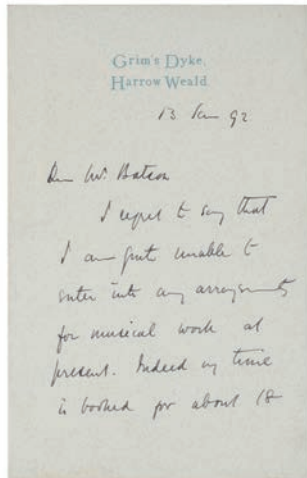 Grim's Dyke,
Harrow Weald.
13 Jan 92.
Dear Mr. Batson
I regret to say that
I am quite unable to
enter into any arrangements
for musical work at
present. Indeed my time
is booked for about 18